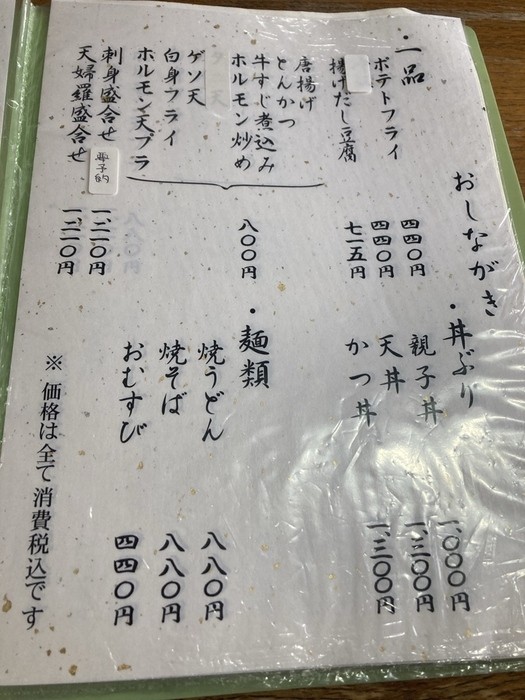 おしながき
・一品
ポテトフライ
四四〇円
四四〇円
揚げだし豆腐
七一五円
唐揚げ
とんかつ
牛すじ煮込み
ホルモン炒め
ゲソ天
白身フライ
ホルモン天プラ
八〇〇円
刺身盛合せ
要予約
一、二一〇円
天婦羅盛合せ
一、二一〇円
・丼ぶり
親子丼
一、〇〇〇円
天丼
一、三〇〇円
かつ丼
一、三〇〇円
・麺類
焼うどん
八八〇円
焼そば
八八〇円
おむすび
四四〇円
※ 価格は全て消費税込です